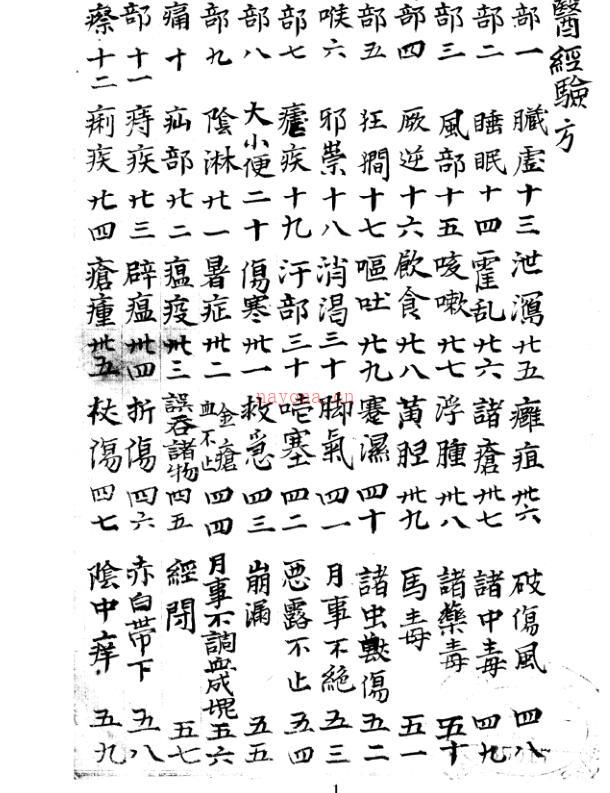 醫經驗方
部一 臓虛十三 泄瀉廿五 癰疽卅六 破傷風四八
部二 睡眠十四 霍乱廿六 諸瘡卅七 諸中毒四九
部三 風部十五 咳嗽廿七 浮腫卅八 諸藥毒五十
部四 厥逆十六 飮食廿八 黄胆卅九 馬毒五一
部五 狂癎十七 嘔吐廿九 蹇濕四十 諸虫獸傷五二
喉六 邪祟十八 消渴三十 脚氣四一 月事不絶五三
部七 瘧疾十九 汗部三十 噎塞四二 惡露不止五四
部八 大小便二十 傷寒卅一 救急四三 崩漏五五
部九 陰淋廿一 暑症卅二 金瘡血不止四四 月事不調血成塊五六
痛十 疝部廿二 瘟疫卅三 誤呑諸物四五 經閉五七
部十一 痔疾廿三 辟瘟卅四 折傷四六 赤白帶下五八
瘵十二 痢疾廿四 瘡瘇卅五 杖傷四七 陰中痒五九
nayona.cn
1